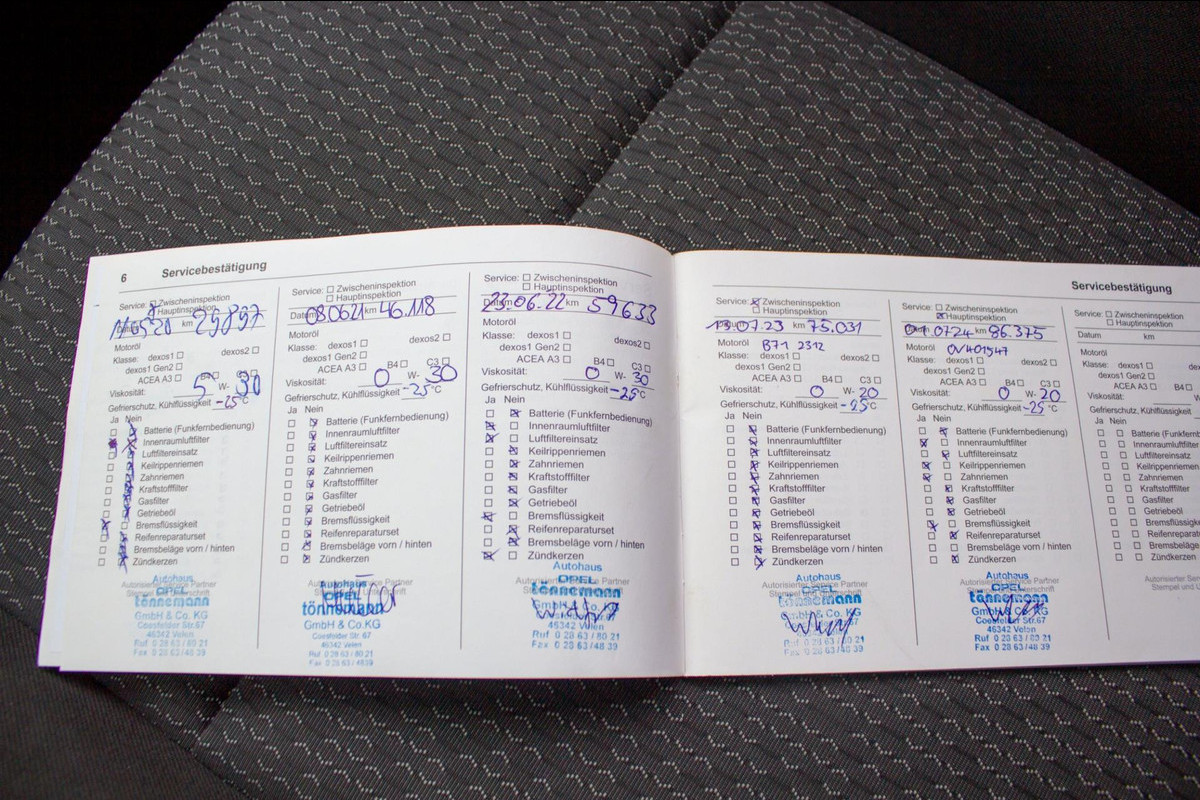 6 Servicebestätigung
Service: Zwischeninspektion
Hauptinspektion
20 km 29897
Motoröl
Klasse: dexos1 dexos2
dexos1 Gen2
ACEA A3 B4 C3
Viskosität: 5 W- 30
Gefrierschutz, Kühlflüssigkeit -25°C
Ja Nein
Batterie (Funkfernbedienung)
Innenraumluftfilter
Luftfiltereinsatz
Keilrippenriemen
Zahnriemen
Kraftstofffilter
Gasfilter
Getriebeöl
Bremsflüssigkeit
Reifenreparaturset
Bremsbeläge vorn / hinten
Zündkerzen
Autorisierter Service Partner
Autohaus
OPEL
tönnemann
GmbH & Co. KG
Coesfelder Str.67
46342 Velen
Ruf 0 28 63 / 80 21
Fax 0 28 63 / 48 39
Service: Zwischeninspektion
Hauptinspektion
Datum 08.06.21 km 46.118
Motoröl
Klasse: dexos1 dexos2
dexos1 Gen2
ACEA A3 B4 C3
Viskosität: 0 W- 30
Gefrierschutz, Kühlflüssigkeit -25°C
Ja Nein
Batterie (Funkfernbedienung)
Innenraumluftfilter
Luftfiltereinsatz
Keilrippenriemen
Zahnriemen
Kraftstofffilter
Gasfilter
Getriebeöl
Bremsflüssigkeit
Reifenreparaturset
Bremsbeläge vorn / hinten
Zündkerzen
Autohaus
OPEL
tönnemann
GmbH & Co. KG
Coesfelder Str.67
46342 Velen
Ruf 0 28 63 / 80 21
Fax 0 28 63 / 48 39
Service: Zwischeninspektion
Hauptinspektion
Datum 23.06.22 km 59633
Motoröl
Klasse: dexos1 dexos2
dexos1 Gen2
ACEA A3 B4 C3
Viskosität: 0 W- 30
Gefrierschutz, Kühlflüssigkeit -25°C
Ja Nein
Batterie (Funkfernbedienung)
Innenraumluftfilter
Luftfiltereinsatz
Keilrippenriemen
Zahnriemen
Kraftstofffilter
Gasfilter
Getriebeöl
Bremsflüssigkeit
Reifenreparaturset
Bremsbeläge vorn / hinten
Zündkerzen
Autohaus
OPEL
tönnemann
GmbH & Co. KG
Coesfelder Str.67
46342 Velen
Ruf 0 28 63 / 80 21
Fax 0 28 63 / 48 39
Servicebestätigung
Service: Zwischeninspektion
Hauptinspektion
07.23 km 75.031
Motoröl B71 2312
Klasse: dexos1 dexos2
dexos1 Gen2
ACEA A3 B4 C3
Viskosität: 0 W- 20
Gefrierschutz, Kühlflüssigkeit -25°C
Ja Nein
Batterie (Funkfernbedienung)
Innenraumluftfilter
Luftfiltereinsatz
Keilrippenriemen
Zahnriemen
Kraftstofffilter
Gasfilter
Getriebeöl
Bremsflüssigkeit
Reifenreparaturset
Bremsbeläge vorn / hinten
Zündkerzen
Autohaus
OPEL
tönnemann
GmbH & Co. KG
Coesfelder Str.67
46342 Velen
Ruf 0 28 63 / 80 21
Fax 0 28 63 / 48 39
Service: Zwischeninspektion
Hauptinspektion
07.24 km 86.375
Motoröl OV401547
Klasse: dexos1 dexos2
dexos1 Gen2
ACEA A3 B4 C3
Viskosität: 0 W- 20
Gefrierschutz, Kühlflüssigkeit -25°C
Ja Nein
Batterie (Funkfernbedienung)
Innenraumluftfilter
Luftfiltereinsatz
Keilrippenriemen
Zahnriemen
Kraftstofffilter
Gasfilter
Getriebeöl
Bremsflüssigkeit
Reifenreparaturset
Bremsbeläge vorn / hinten
Zündkerzen
Autohaus
OPEL
tönnemann
GmbH & Co. KG
Coesfelder Str.67
46342 Velen
Ruf 0 28 63 / 80 21
Fax 0 28 63 / 48 39
Service: Zwischeninspektion
Hauptinspektion
Datum km
Motoröl
Klasse: dexos1
dexos1 Gen2
ACEA A3 B4
Viskosität:
Gefrierschutz, Kühlflüssigkeit
Ja Nein
Batterie (Funkfernbe
Innenraumluftfilter
Luftfiltereinsatz
Keilrippenriemen
Zahnriemen
Kraftstofffilter
Gasfilter
Getriebeöl
Bremsflüssigke
Reifenreparatu
Bremsbeläge
Zündkerzen
Autorisierter Ser
Stempel und U